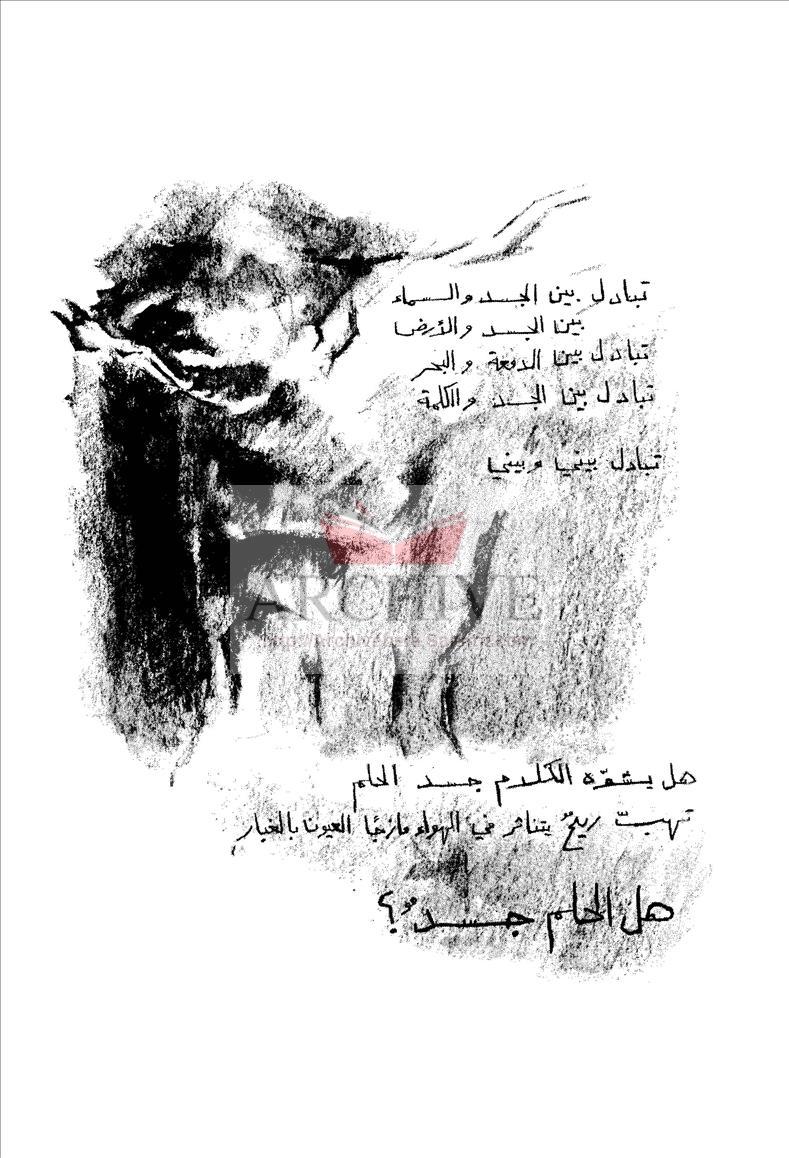 تبادل بين الجسد والسماء
بين الجسد والأرض
تبادل بين الدمعة والبحر
تبادل بين الجسد والكلمة
تبادل بيني وبيني
ARCHIVE
هل يشوّه الكلام جسد الحلم
تهبّ ريحٌ يتناثر في الهواء مازجًا العيون بالغبار
هل الحلم جسدٌ؟